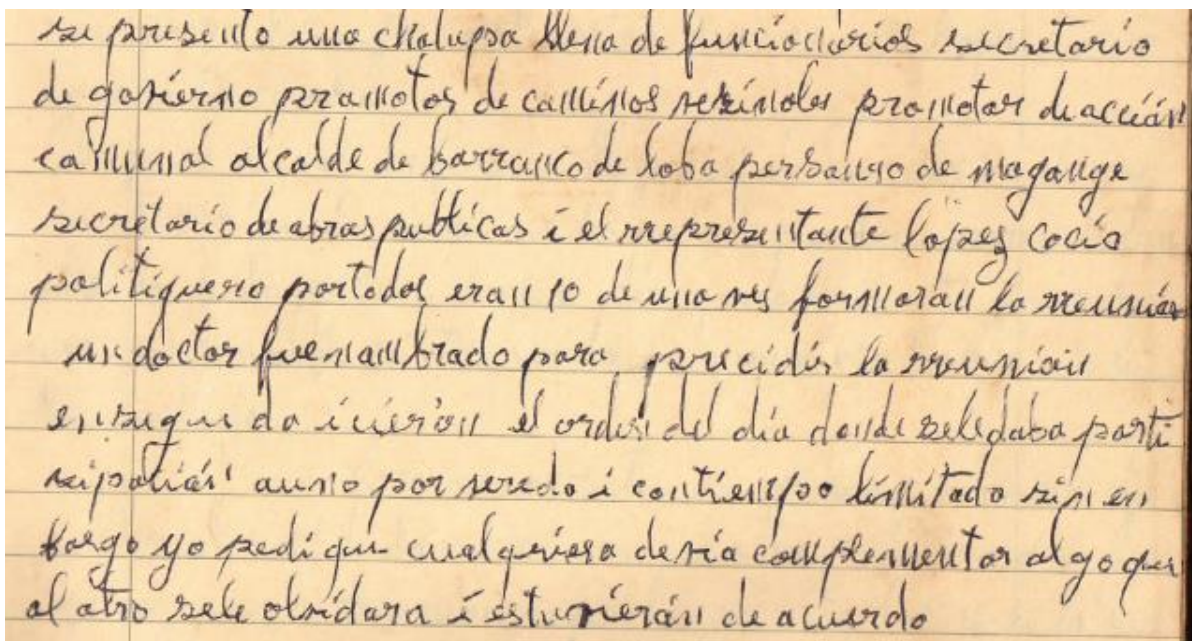 se presento una chalupa llena de funcionarios secretario
de govierno promotor de caminos vesinoles promotor de acción
comunal alcalde de barranco de loba personso de magange
secretario de obras publicas i el rrepresentante lópez cocio
politiquero por todos eran 10 de una ves formaran la rreunión
un doctor fue nambrado para precidir la rreunión
en seguida icieron el orden del dia donde sele daba parti
sipasión a uno por rueda i con tiempo limitado sin en
bargo yo pedi que cualquiera devia complementar algo que
al otro sele olvidara i estuvierán de acuerdo